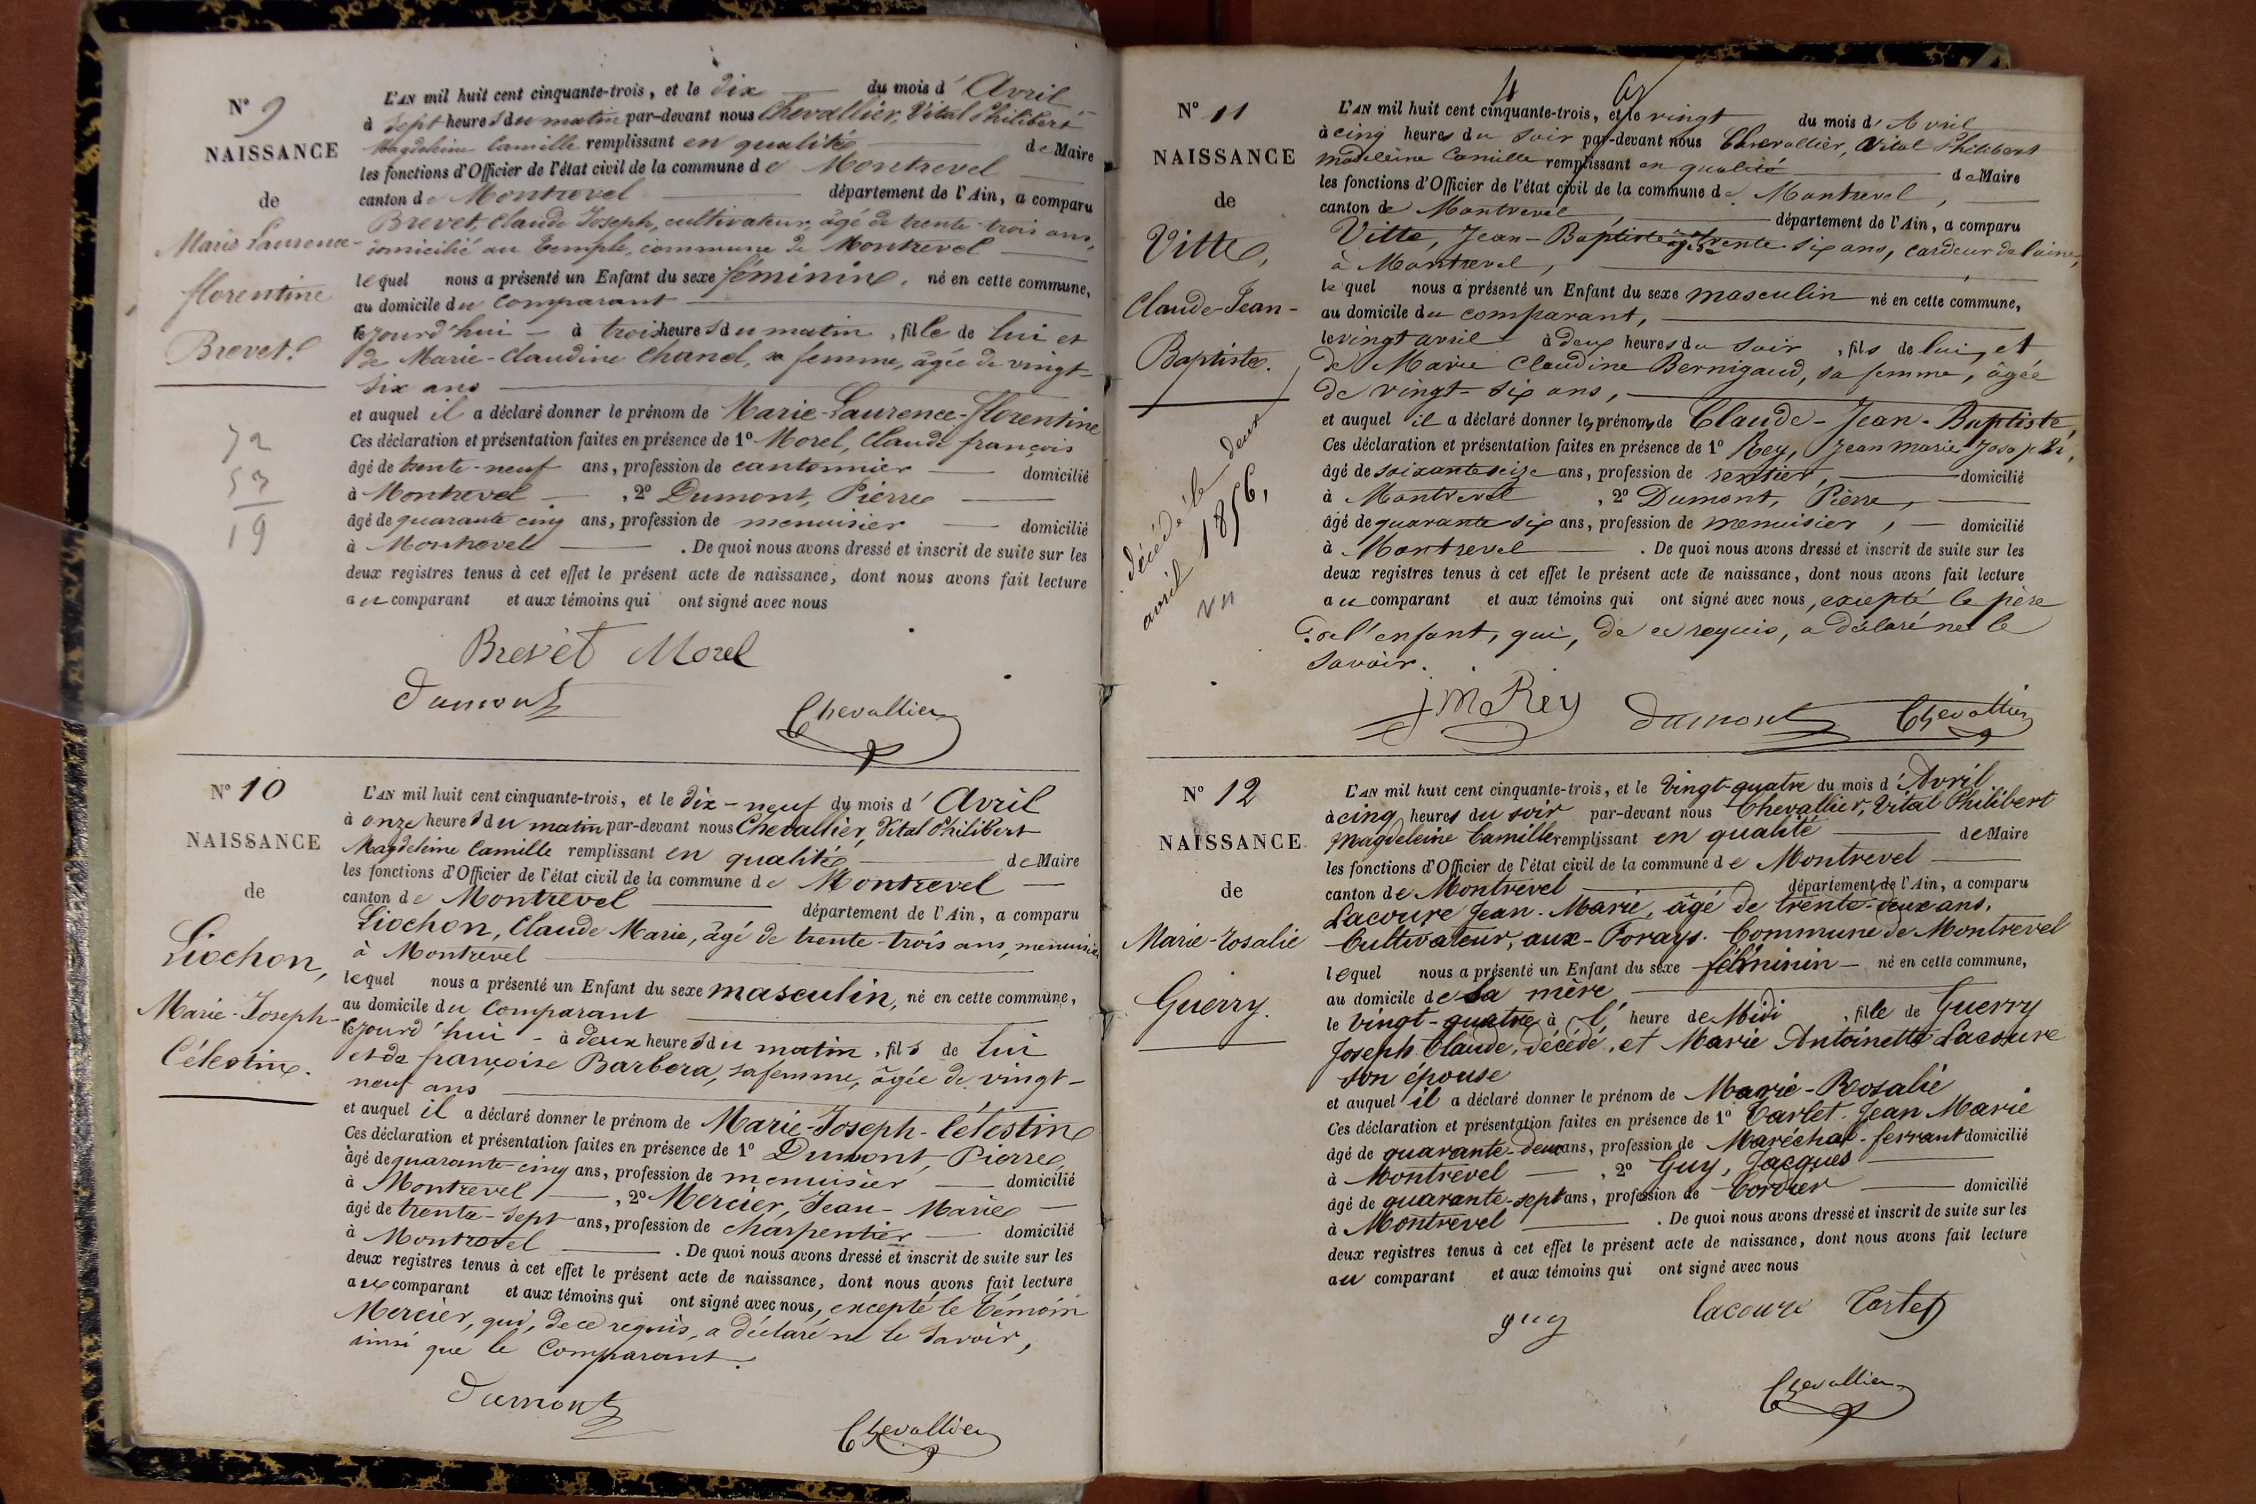 N° 9
NAISSANCE
de
Marie Laurence-
florentine
Brevet.
72
53
19
L'AN mil huit cent cinquante-trois, et le dix du mois d' Avril
à sept heures du matin par-devant nous Chevallier, Vital Philibert
Magdeleine Camille remplissant en qualité de Maire
les fonctions d'Officier de l'état civil de la commune de Montrevel
canton de Montrevel département de l'Ain, a comparu
Brevet, Claude Joseph, cultivateur, âgé de trente-trois ans,
domicilié au Temple, commune de Montrevel
lequel nous a présenté un Enfant du sexe féminin, né en cette commune,
au domicile du comparant
cejourd'hui à trois heures du matin, fille de lui et
de Marie-Claudine Chanel, sa femme, âgée de vingt-
six ans
et auquel il a déclaré donner le prénom de Marie-Laurence-florentine
Ces déclaration et présentation faites en présence de 1° Morel, Claude françois
âgé de trente-neuf ans, profession de cantonnier domicilié
à Montrevel, 2° Dumont, Pierre
âgé de quarante cinq ans, profession de menuisier domicilié
à Montrevel. De quoi nous avons dressé et inscrit de suite sur les
deux registres tenus à cet effet le présent acte de naissance, dont nous avons fait lecture
au comparant et aux témoins qui ont signé avec nous
Brevet Morel
Dumont Chevallier
N° 10
NAISSANCE
de
Liochon,
Marie-Joseph-
Célestin.
L'AN mil huit cent cinquante-trois, et le dix-neuf du mois d' Avril
à onze heures du matin par-devant nous Chevallier, Vital Philibert
Magdeleine Camille remplissant en qualité de Maire
les fonctions d'Officier de l'état civil de la commune de Montrevel
canton de Montrevel département de l'Ain, a comparu
Liochon, Claude Marie, âgé de trente-trois ans, menuisier
à Montrevel
lequel nous a présenté un Enfant du sexe masculin, né en cette commune,
au domicile du Comparant
cejourd'hui - à deux heures du matin, fils de lui
et de françoise Barbera, sa femme, âgée de vingt-
neuf ans
et auquel il a déclaré donner le prénom de Marie-Joseph-Célestin
Ces déclaration et présentation faites en présence de 1° Dumont, Pierre
âgé de quarante-cinq ans, profession de menuisier domicilié
à Montrevel, 2° Mercier, Jean-Marie
âgé de trente-sept ans, profession de charpentier domicilié
à Montrevel. De quoi nous avons dressé et inscrit de suite sur les
deux registres tenus à cet effet le présent acte de naissance, dont nous avons fait lecture
au comparant et aux témoins qui ont signé avec nous, excepté le témoin
Mercier, qui, de ce requis, a déclaré ne le savoir,
ainsi que le Comparant.
Dumont
Chevallier
N° 11
NAISSANCE
de
Vitte,
Claude-Jean-
Baptiste.
décédé le deux
avril 1856,
L'AN mil huit cent cinquante-trois, et le vingt du mois d' Avril
à cinq heures du soir par-devant nous Chevallier, Vital Philibert
Madeleine Camille remplissant en qualité de Maire
les fonctions d'Officier de l'état civil de la commune de Montrevel,
canton de Montrevel, département de l'Ain, a comparu
Vitte, Jean-Baptiste, âgé de trente six ans, cardeur de laine,
à Montrevel,
lequel nous a présenté un Enfant du sexe masculin né en cette commune,
au domicile du comparant,
le vingt avril à deux heures du soir, fils de lui, et
de Marie Claudine Bernigaud, sa femme, âgée
de vingt-six ans,
et auquel il a déclaré donner les prénoms de Claude-Jean-Baptiste,
Ces déclaration et présentation faites en présence de 1° Rey, Jean Marie Joseph,
âgé de soixante seize ans, profession de rentier, domicilié
à Montrevel, 2° Dumont, Pierre,
âgé de quarante six ans, profession de menuisier, domicilié
à Montrevel. De quoi nous avons dressé et inscrit de suite sur les
deux registres tenus à cet effet le présent acte de naissance, dont nous avons fait lecture
au comparant et aux témoins qui ont signé avec nous, excepté le père
de l'enfant, qui, de ce requis, a déclaré ne le
savoir.
J M Rey Dumont Chevallier
N° 12
NAISSANCE
de
Marie-Rosalie
Guerry.
L'AN mil huit cent cinquante-trois, et le vingt-quatre du mois d' Avril
à cinq heures du soir par-devant nous Chevallier, Vital Philibert
Magdeleine Camille remplissant en qualité de Maire
les fonctions d'Officier de l'état civil de la commune de Montrevel
canton de Montrevel département de l'Ain, a comparu
Lacoure Jean-Marie, âgé de trente-deux ans,
Cultivateur, aux-Forays. Commune de Montrevel
lequel nous a présenté un Enfant du sexe féminin - né en cette commune,
au domicile de sa mère
le vingt-quatre à l' heure de Midi, fille de Guerry
Joseph Claude, décédé, et Marie Antoinette Lacoure
son épouse
et auquel il a déclaré donner le prénom de Marie-Rosalie
Ces déclaration et présentation faites en présence de 1° Tartet Jean Marie
âgé de quarante-deux ans, profession de Maréchal-ferrant domicilié
à Montrevel, 2° Guy, Jacques
âgé de quarante-sept ans, profession de Cordier domicilié
à Montrevel. De quoi nous avons dressé et inscrit de suite sur les
deux registres tenus à cet effet le présent acte de naissance, dont nous avons fait lecture
au comparant et aux témoins qui ont signé avec nous
guy lacoure Tartet
Chevallier